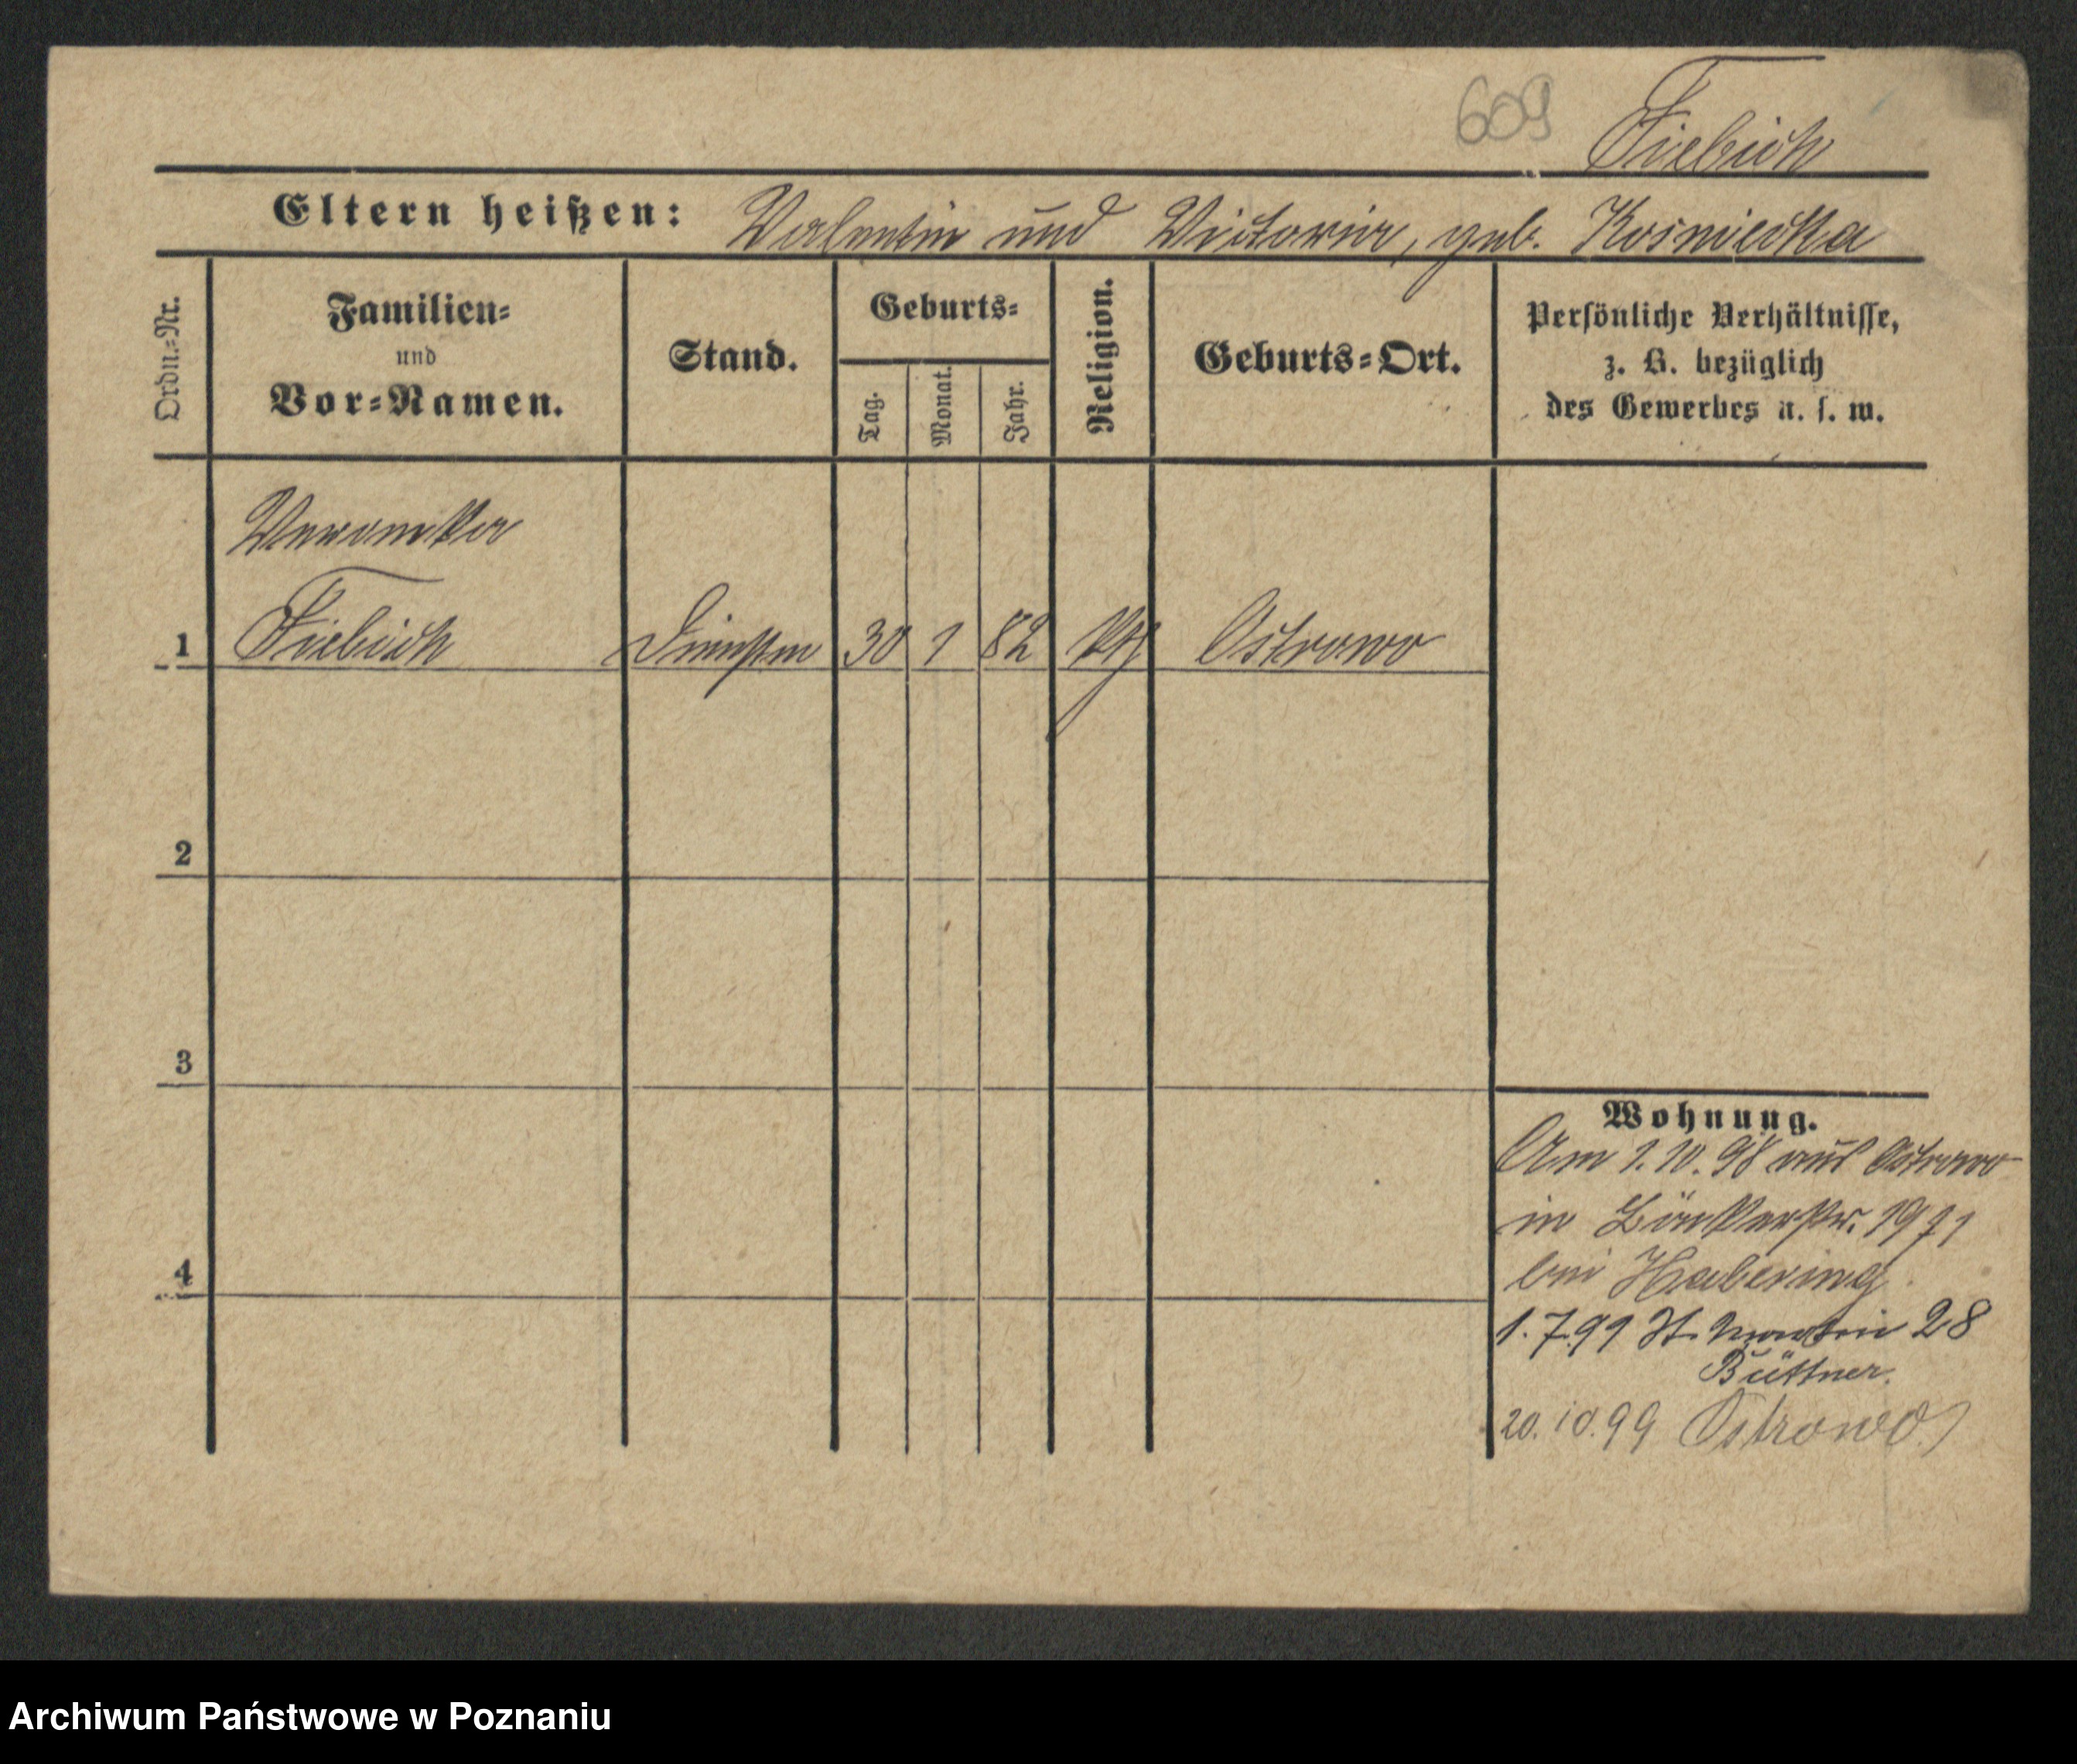 609 Fiebich
Eltern heißen: Valentin und Victoria, geb. Kosmiecka
Ordn.-Nr.
Familien-
und
Vor-Namen.
Stand.
Geburts-
Tag.
Monat.
Jahr.
Religion.
Geburts-Ort.
Persönliche Verhältnisse,
z. B. bezüglich
des Gewerbes u. s. w.
Veronika
1 Fiebich 30 1 82 kth Ostrowo
2
3
4
Wohnung.
Am 1.10.98 aus Ostrowo
in Bäckerstr.
bei Habering
1.7.99 St. Martin 28
Büttner.
20.10.99 Ostrowo
Archiwum Państwowe w Poznaniu